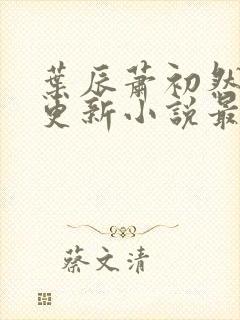 葉辰蕭初然
更新小說最
蔡文清